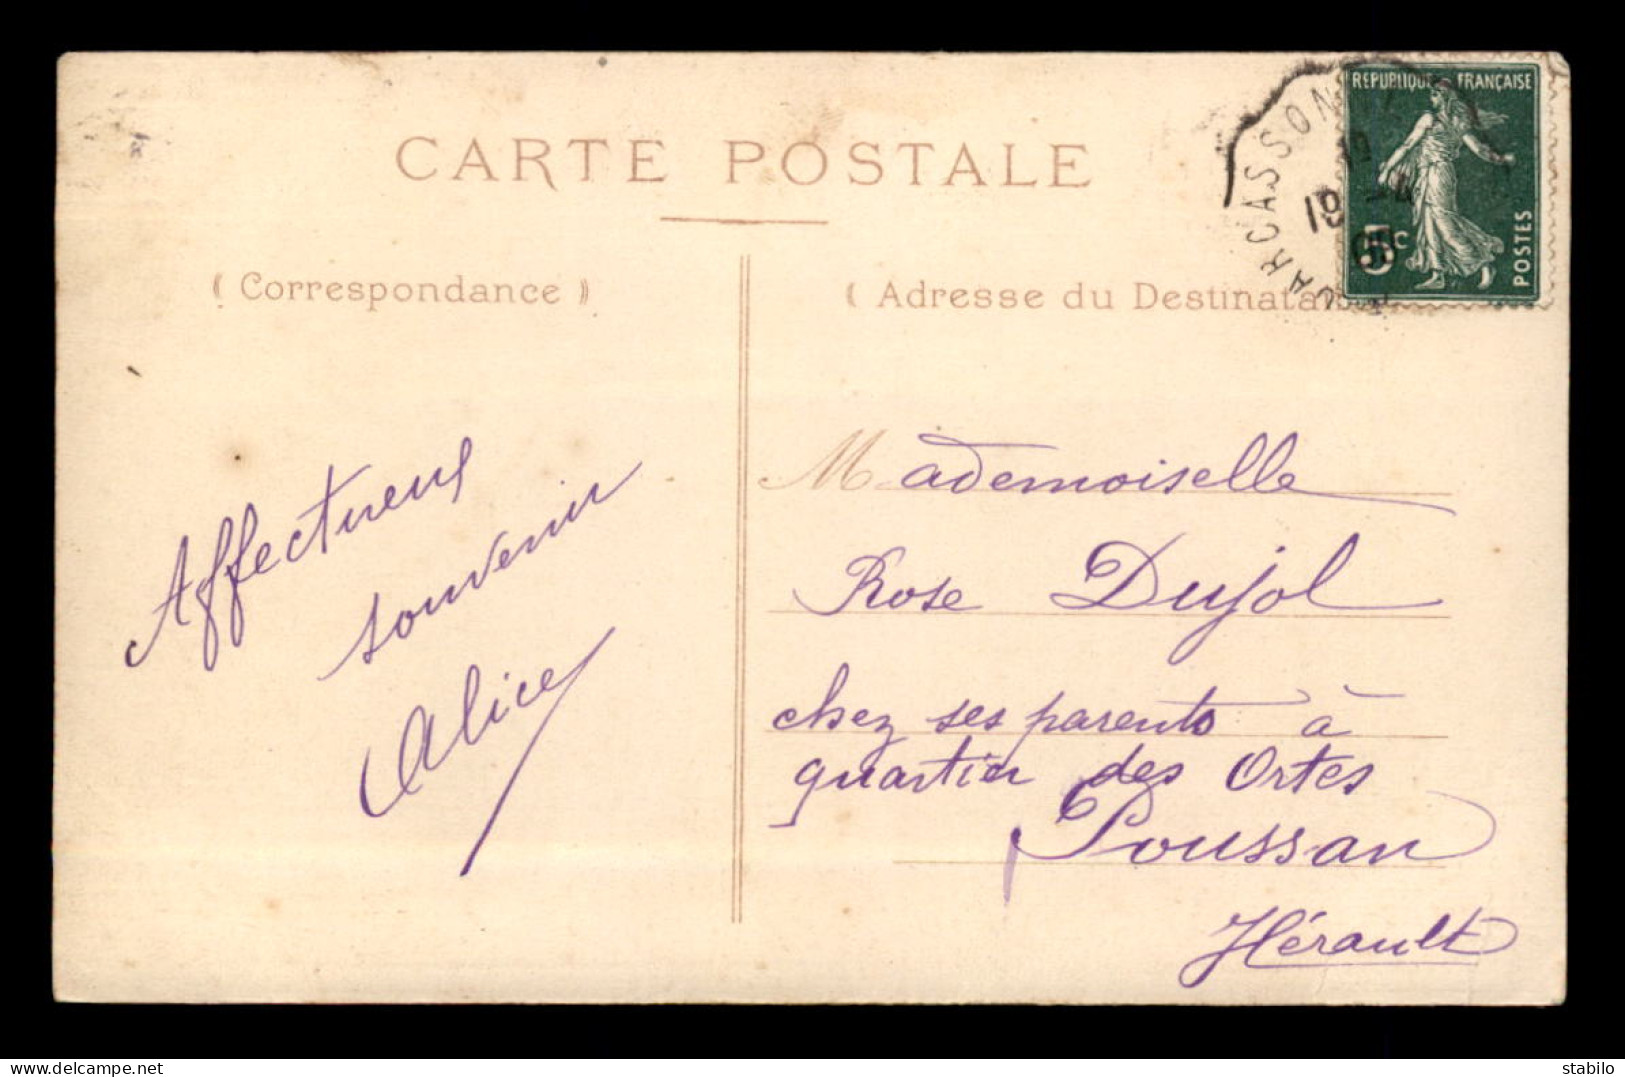 CARTE POSTALE
( Correspondance )
( Adresse du
RÉPUBLIQUE FRANÇAISE
POSTES
5c
CARCASSONNE
Affectueux
souvenir
Alice
Mademoiselle
Rose Dujol
chez ses parents à
quartier des Ortes
Poussan
Hérault
delcampe.net
stabilo